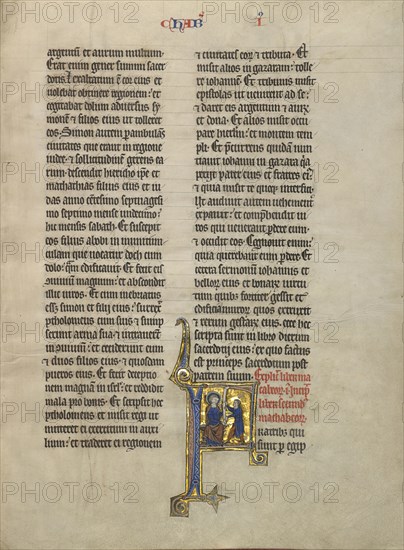 Chab' I
argentum et aurum multum.
Erat enim gener summi sacer
dotis. Et exaltatum e cor eius et
volebat obtinere regionem: et
cogitabat dolum adversus sy
monē et filios eius ut tolleret
eos. Simon autem pambulās
civitates que erant in regione
iudee et sollicitudinē gerens ea
rum descendit
mathathias filius eius et iu
das anno centesimo septuagesi
mo septimo mense undecimo:
hic mensis sabath. Et suscepit
eos filius abobi in munitiun
culam que vocatur doch cum
dolo: quā edificavit. Et fecit eis
magnum: et abscondit
illic viros. Et cum inebriatus
esset simon et filii eius: surrex
ptholomeus cum suis et sump
serunt arma sua et intraverunt
in et occiderunt eum
et duos filios eius et quosdam
pueros eius. Et fecit deceptio
nem magnam in isrl: et reddidit
mala pro bonis. Et scripsit hec
ptholomeus et misit regi ut
mitteret ei exercitum in auxi
lium: et traderet ei regionem
et civitates eorū et tributa. Et
misit alios in gazaram: tolle
re iohannem. Et tribunis misit
epistolas ut venirent ad se:
et daret eis argentum et aurū
et dona. Et alios misit occu
pare et montem tem
pli. Et quidam nun
tiavit iohanni in gazara q
pater eius et fratres ei
et quia misit te quoq interfici.
Ut audivit autem vehement
expavit: et comphendit vi
ros qui venerant pdere eum
et occidit eos. Cognovit enim:
quia querebant eum pdere. Et
cetera sermonum iohannis et
bellorū eius et bonarū virtu
tum quibus fortiter gessit et
edificii murorum quos extruxit
et rerum gestarū eius. ecce hec
scripta sunt in libro dierum
sacerdotij eius: ex quo factus
est princeps sacerdotum post
patrem suum. Explic liber ma
liber secund'
machabeorū.
fratribus qui
sunt p egip